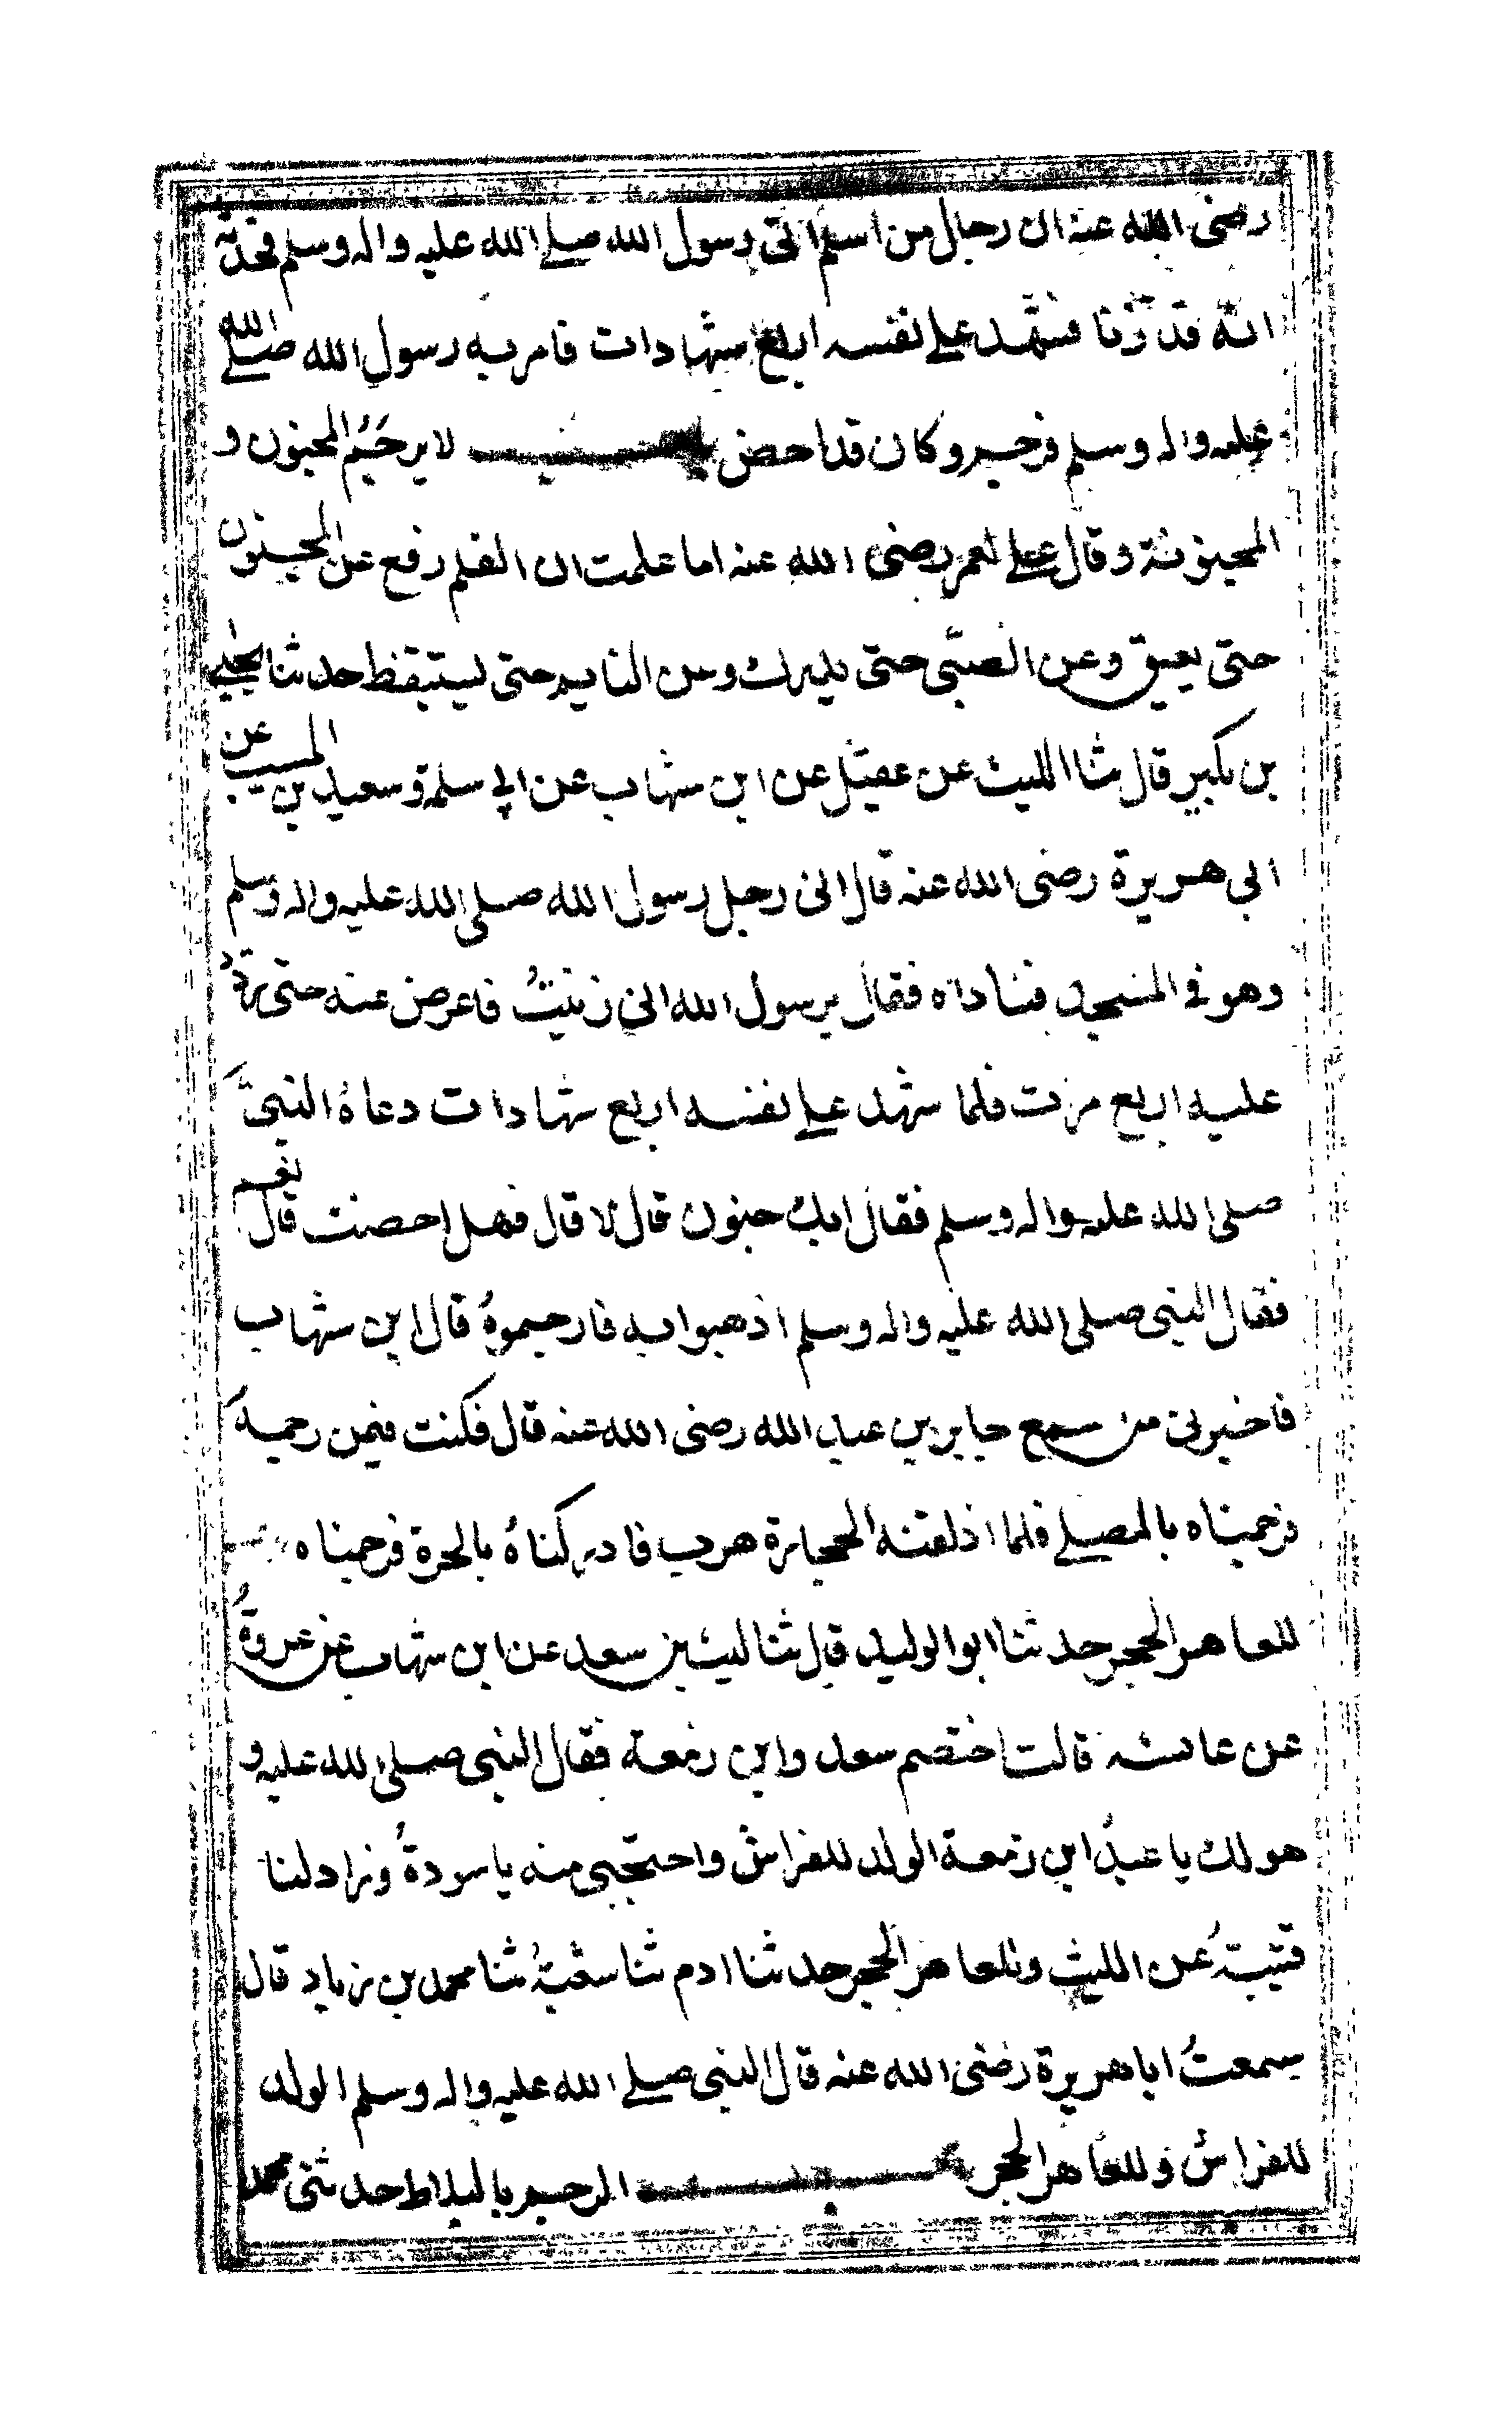 رضى الله عنه ان رجلا من اسلم اتى رسول الله صلى الله عليه واله وسلم فحدثه
انه قد زنا فشهد على نفسه اربع شهادات فامر به رسول الله صلى الله
عليه واله وسلم فرجم وكان قد احصن باب لا يرجم المجنون و
المجنونة وقال على لعمر رضى الله عنه اما علمت ان القلم رفع عن المجنون
حتى يفيق وعن الصبى حتى يدرك وعن النايم حتى يستيقظ حدثنا يحيى
بن بكير قال ثنا الليث عن عقيل عن ابن شهاب عن ابى سلمة وسعيد بن المسيب عن
ابى هريرة رضى الله عنه قال اتى رجل رسول الله صلى الله عليه واله وسلم
وهو فى المسجد فناداه فقال يرسول الله انى زنيتُ فاعرض عنه حتى ردد
عليه اربع مرت فلما شهد على نفسه اربع شهادات دعاهُ النبىُّ
صلى الله عليه واله وسلم فقال ابك جنون قال لا قال فهل احصنت قال نعم
فقال النبى صلى الله عليه واله وسلم اذهبوا به فارجموهُ قال ابن شهاب
فاخبرنى من سمع جابر بن عبد الله رضى الله عنه قال فكنت فيمن رجمه
فرجمناه بالمصلى فلما اذلقته الحجارة هرب فادركناهُ بالحرة فرجمناه
للعاهر الحجر حدثنا ابو الوليد قال ثنا ليث بن سعد عن ابن شهاب عن عروةُ
عن عائشه قالت اختصم سعد وابن زمعة فقال النبى صلى الله عليه و
هو لك يا عبدُ ابن زمعة الولد للفراش واحتجبى منه يا سودةُ وزاد لنا
قتيبةُ عن الليث وللعاهر الحجر حدثنا ادم ثنا شعبةُ ثنا محمد بن زياد قال
سمعتُ ابا هريرة رضى الله عنه قال النبى صلى الله عليه واله وسلم الولد
للفراش وللعاهر الحجر باب الرجم بالبلاط حدثنى محمد